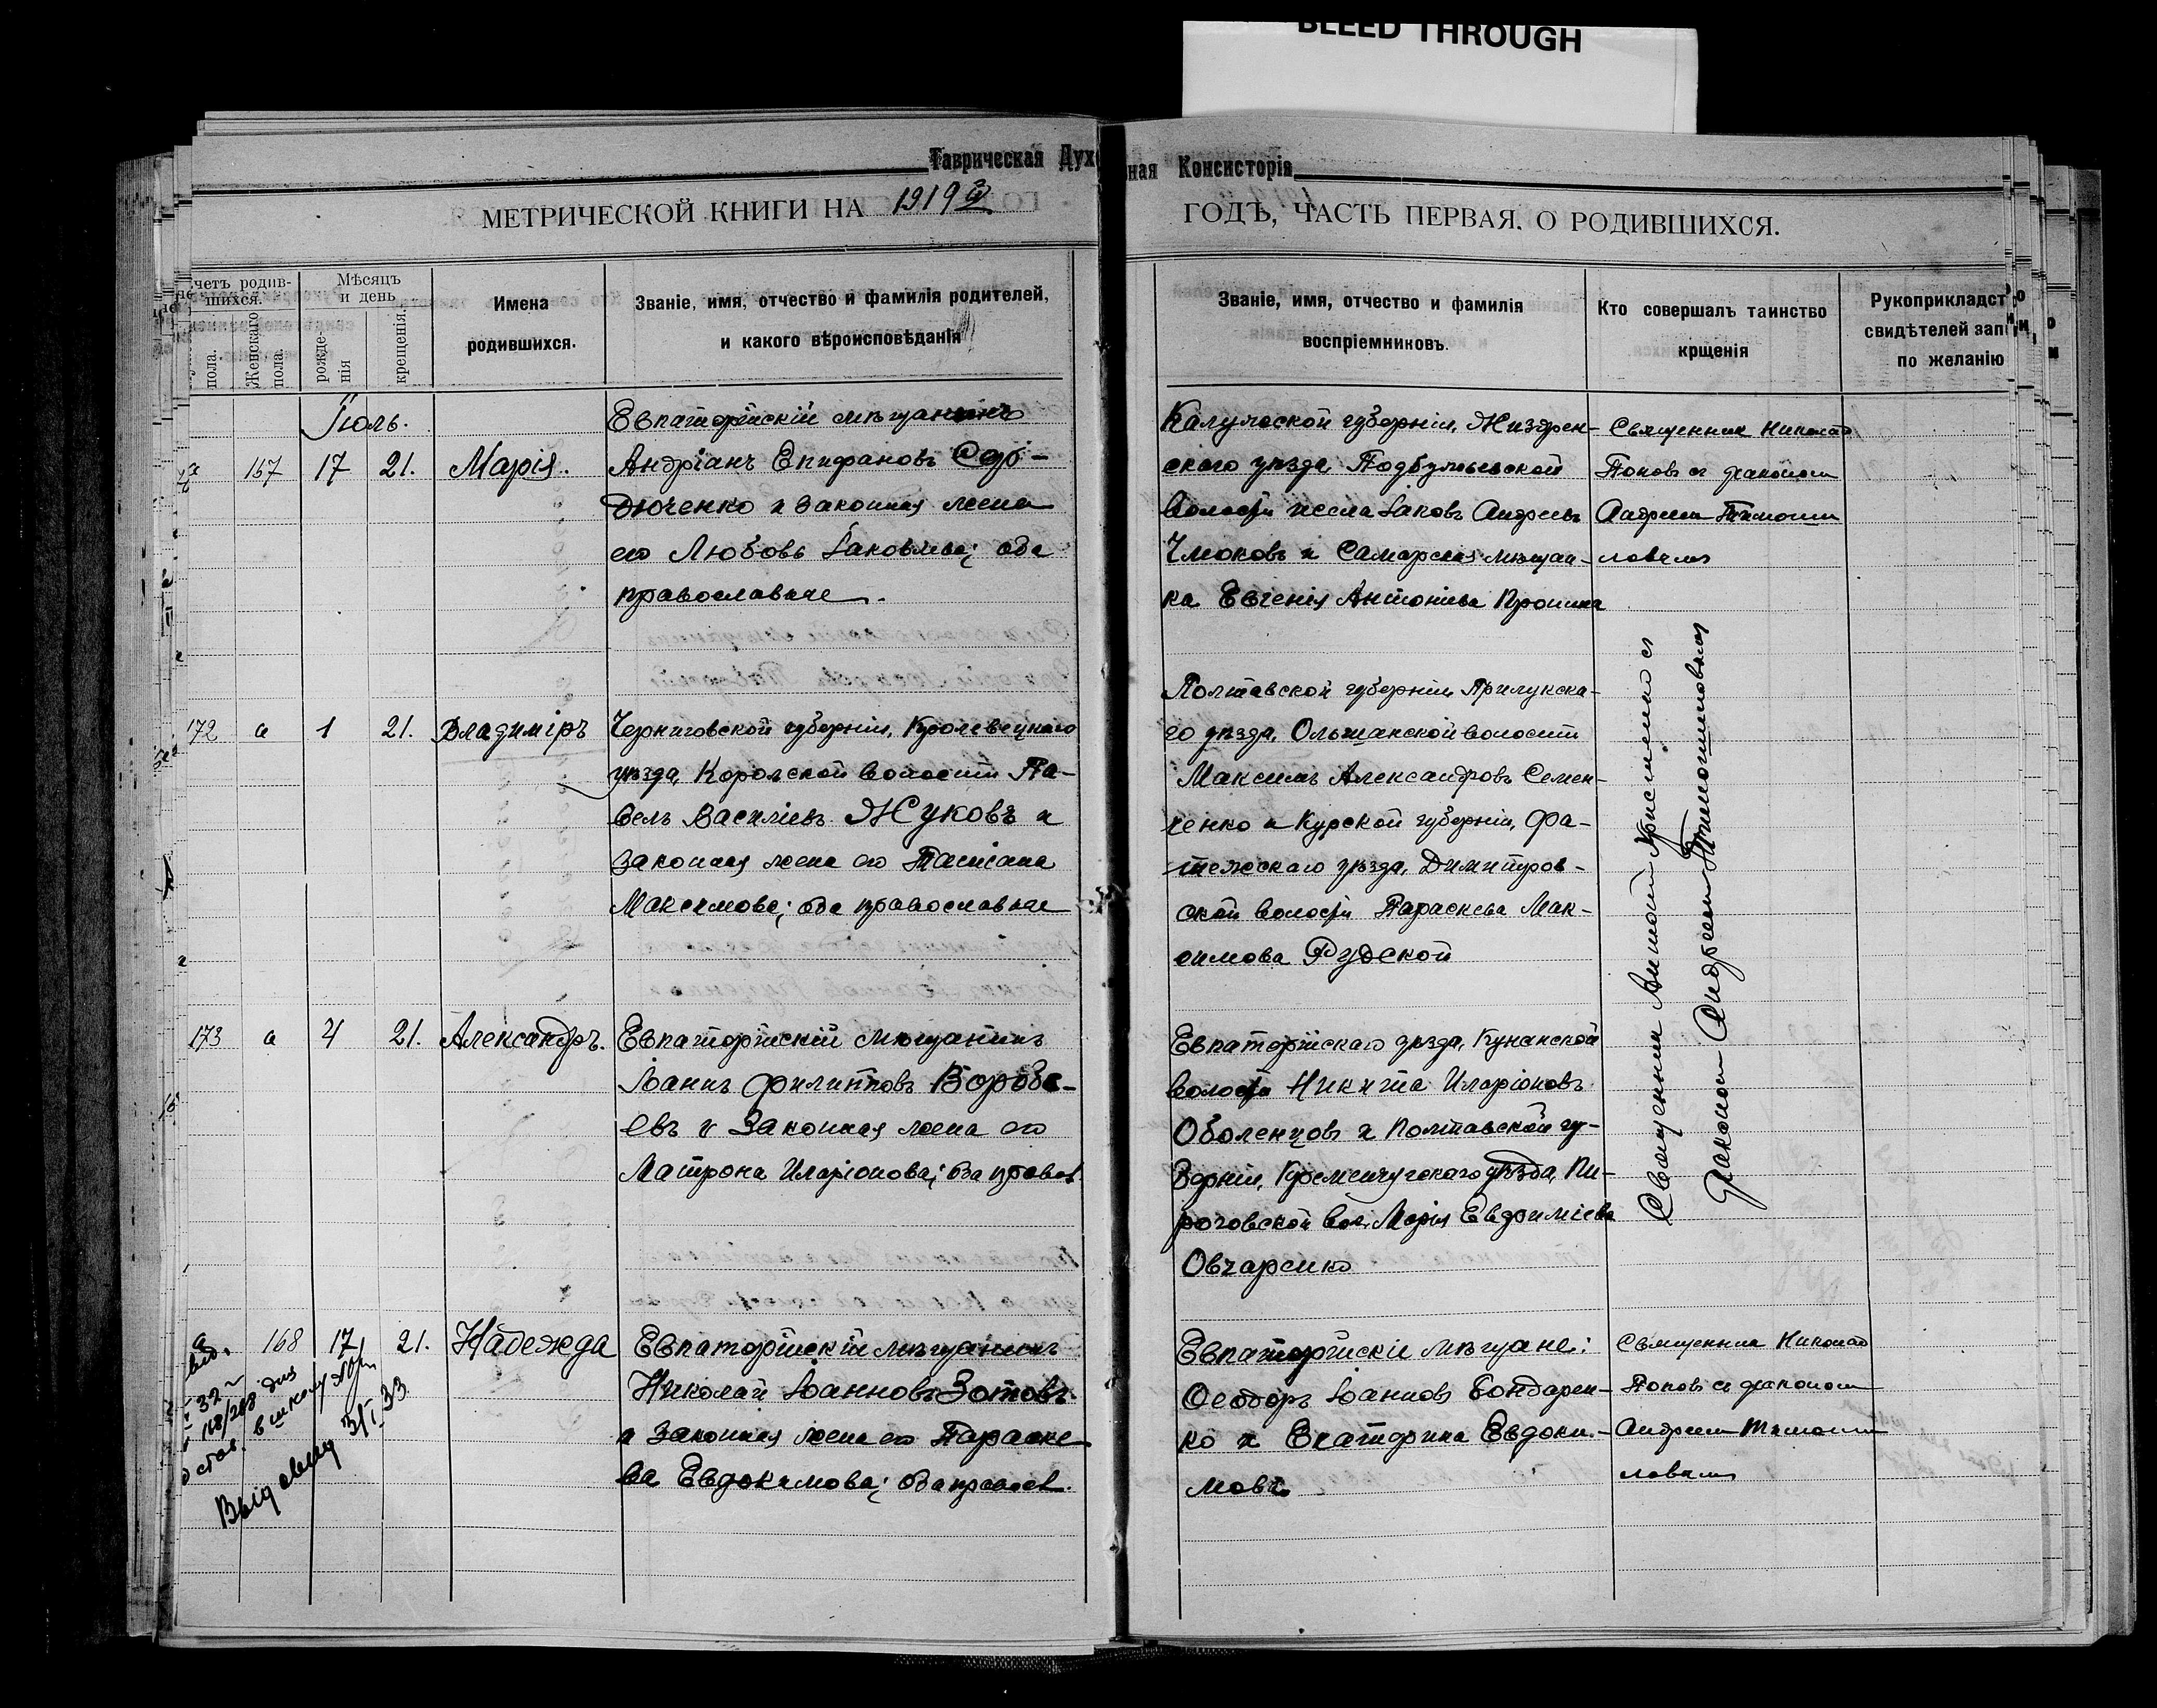 BLEED THROUGH
Таврическая Духо
ная Консисторія
МЕТРИЧЕСКОЙ КНИГИ НА 1919й
ГОДЪ, ЧАСТЬ ПЕРВАЯ, О РОДИВШИХСЯ.
четъ родив-
шихся.
пола.
Женскаго
пола.
Мѣсяцъ
и день
рожде-
нія
крещенія.
Имена
родившихся.
Званіе, имя, отчество и фамилія родителей,
и какого вѣроисповѣданія
Званіе, имя, отчество и фамилія
воспріемниковъ.
Кто совершалъ таинство
крщенія
Рукоприкладст
свидѣтелей запи
по желанію
Іюль.
157 17 21. Марія.
Евпаторійскій мѣщанинъ
Андріанъ Епифановъ Сер-
дюченко и законная жена
его Любовь Іаковлева; оба
православные.
Калужской губерніи, Жиздрен-
скаго уѣзда, Подбужьевской
волости Іаковъ Андреевъ
Чмоковъ и Самарская мѣщан-
ка Евгенія Антоніева Пронина
Священник Николай
Поповъ съ діакономъ
Андреемъ Тимоши
ловымъ
172 а 1 21. Владиміръ
Черниговской губерніи, Кролевецкаго
уѣзда, Коропской волости Па-
велъ Василіевъ Жуковъ и
законная жена его Татіана
Максимова; оба православные
Полтавской губерніи Прилукска-
го уѣзда, Ольшанской волости
Максимъ Александровъ Семен-
ченко и Курской губерніи, Фа-
тежскаго уѣзда, Димитров-
ской волости Параскева Мак-
симова Рудской
Священник
діакономъ Андреемъ Тимошиловымъ
173 а 4 21. Александръ.
Евпаторійскій мѣщанинъ
Іоаннъ Филипповъ Воробь-
евъ и законная жена его
Матрона Иларіонова; оба правос.
Евпаторійскаго уѣзда, Кунанской
волости Никита Иларіоновъ
Оболенцовъ и Полтавской гу-
берніи, Кременчугскаго уѣзда, Пи-
роговской вол. Марія Евфиміева
Овчаренко
168 17 21. Надежда
Евпаторійскій мѣщанинъ
Николай Іоанновъ Зотовъ
и законная жена его Параске
ва Евдокимова; оба правосл.
Евпаторійскіе мѣщане:
Ѳеодоръ Іоанновъ Бондарен-
ко и Екатерина Евдоки-
мова
Священник Николай
Поповъ съ діакономъ
Андреемъ Тимоши
ловымъ
32
168/268 для
в школу
3/I 33